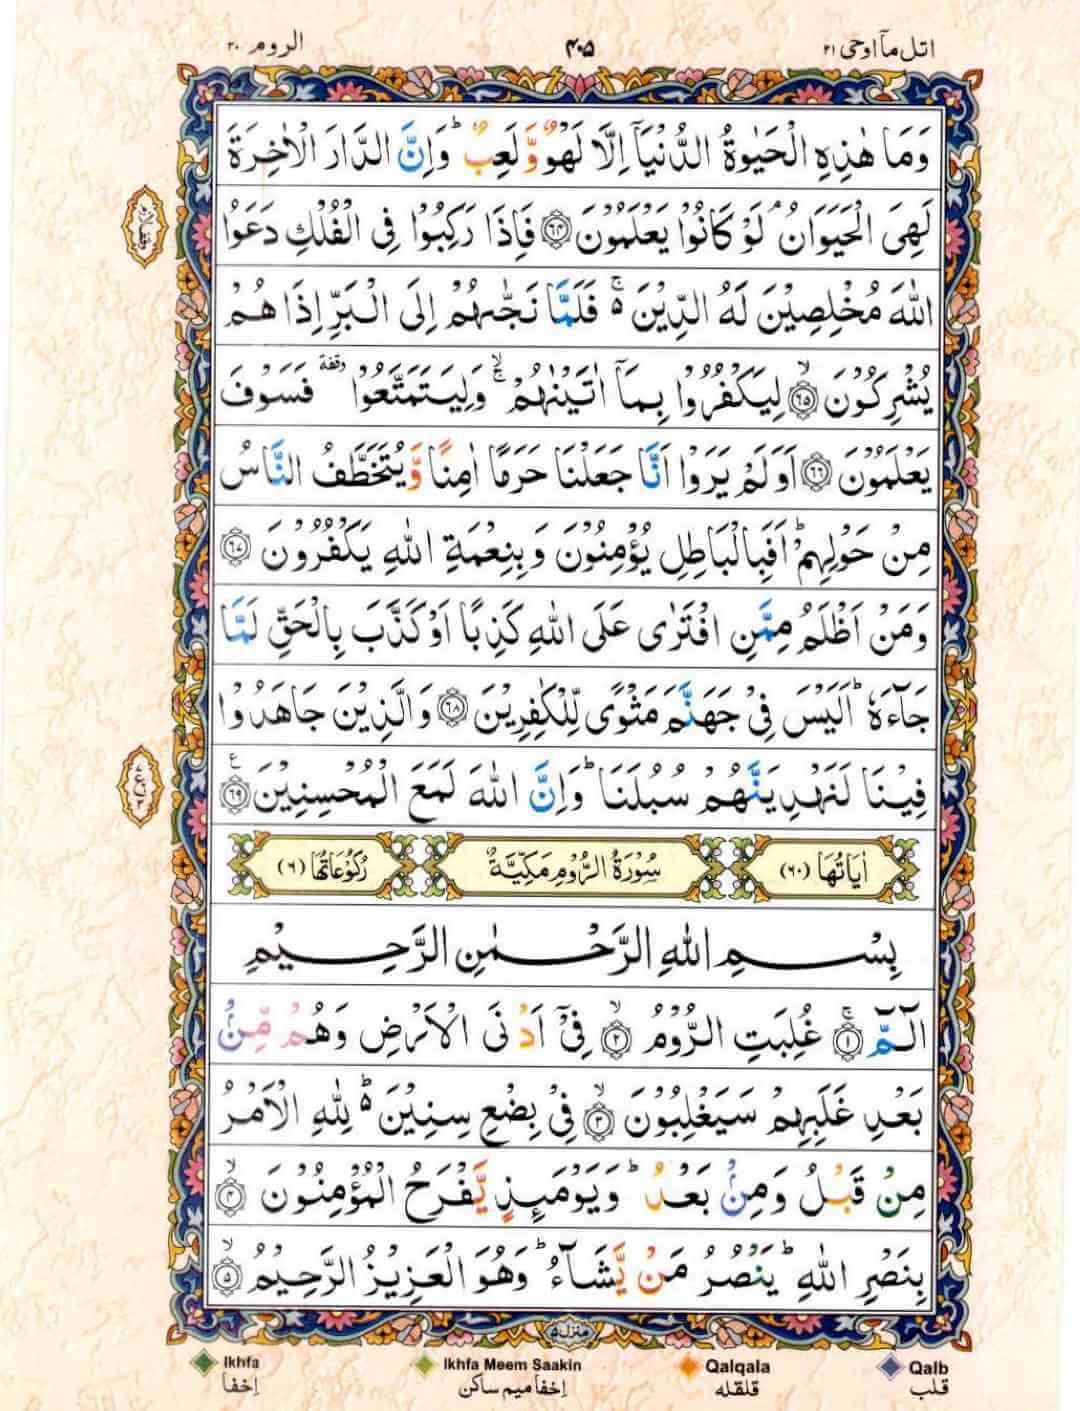 اتل مآ اوحی ۲۱ ۴۰۵ الروم ۳۰
وَمَا هٰذِهِ الْحَيٰوةُ الدُّنْيَآ اِلَّا لَهْوٌ وَّلَعِبٌ ؕ وَاِنَّ الدَّارَ الْاٰخِرَةَ
لَهِىَ الْحَيَوَانُ ۘ لَوْ كَانُوْا يَعْلَمُوْنَ ﴿۶۴﴾ فَاِذَا رَكِبُوْا فِى الْفُلْكِ دَعَوُا
اللّٰهَ مُخْلِصِيْنَ لَهُ الدِّيْنَ ۚ۬ فَلَمَّا نَجّٰٮهُمْ اِلَى الْبَرِّ اِذَا هُمْ
يُشْرِكُوْنَ ۙ﴿۶۵﴾ لِيَكْفُرُوْا بِمَآ اٰتَيْنٰهُمْ ۚۙ وَلِيَتَمَتَّعُوْا وقفة فَسَوْفَ
يَعْلَمُوْنَ ﴿۶۶﴾ اَوَلَمْ يَرَوْا اَنَّا جَعَلْنَا حَرَمًا اٰمِنًا وَّيُتَخَطَّفُ النَّاسُ
مِنْ حَوْلِهِمْ ؕ اَفَبِالْبَاطِلِ يُؤْمِنُوْنَ وَبِنِعْمَةِ اللّٰهِ يَكْفُرُوْنَ ﴿۶۷﴾
وَمَنْ اَظْلَمُ مِمَّنِ افْتَرٰى عَلَى اللّٰهِ كَذِبًا اَوْ كَذَّبَ بِالْحَقِّ لَمَّا
جَآءَهٗ ؕ اَلَيْسَ فِىْ جَهَنَّمَ مَثْوًى لِّلْكٰفِرِيْنَ ﴿۶۸﴾ وَالَّذِيْنَ جَاهَدُوْا
فِيْنَا لَنَهْدِيَنَّهُمْ سُبُلَنَا ؕ وَاِنَّ اللّٰهَ لَمَعَ الْمُحْسِنِيْنَ ﴿۶۹﴾ ع
اٰيَاتُهَا (۶۰) سُوْرَةُ الرُّوْمِ مَكِّيَّةٌ رُكُوْعَاتُهَا (۶)
بِسْمِ اللّٰهِ الرَّحْمٰنِ الرَّحِيْمِ
الٓمّٓ ۚ﴿۱﴾ غُلِبَتِ الرُّوْمُ ۙ﴿۲﴾ فِىْٓ اَدْنَى الْاَرْضِ وَهُمْ مِّنْۢ
بَعْدِ غَلَبِهِمْ سَيَغْلِبُوْنَ ۙ﴿۳﴾ فِىْ بِضْعِ سِنِيْنَ ؕ۬ لِلّٰهِ الْاَمْرُ
مِنْ قَبْلُ وَمِنْۢ بَعْدُ ؕ وَيَوْمَئِذٍ يَّفْرَحُ الْمُؤْمِنُوْنَ ۙ﴿۴﴾
بِنَصْرِ اللّٰهِ ؕ يَنْصُرُ مَنْ يَّشَآءُ ؕ وَهُوَ الْعَزِيْزُ الرَّحِيْمُ ۙ﴿۵﴾
منزل ۵
Ikhfa Ikhfa Meem Saakin Qalqala Qalb
اِخفا اِخفا میم ساکن قلقله قلب